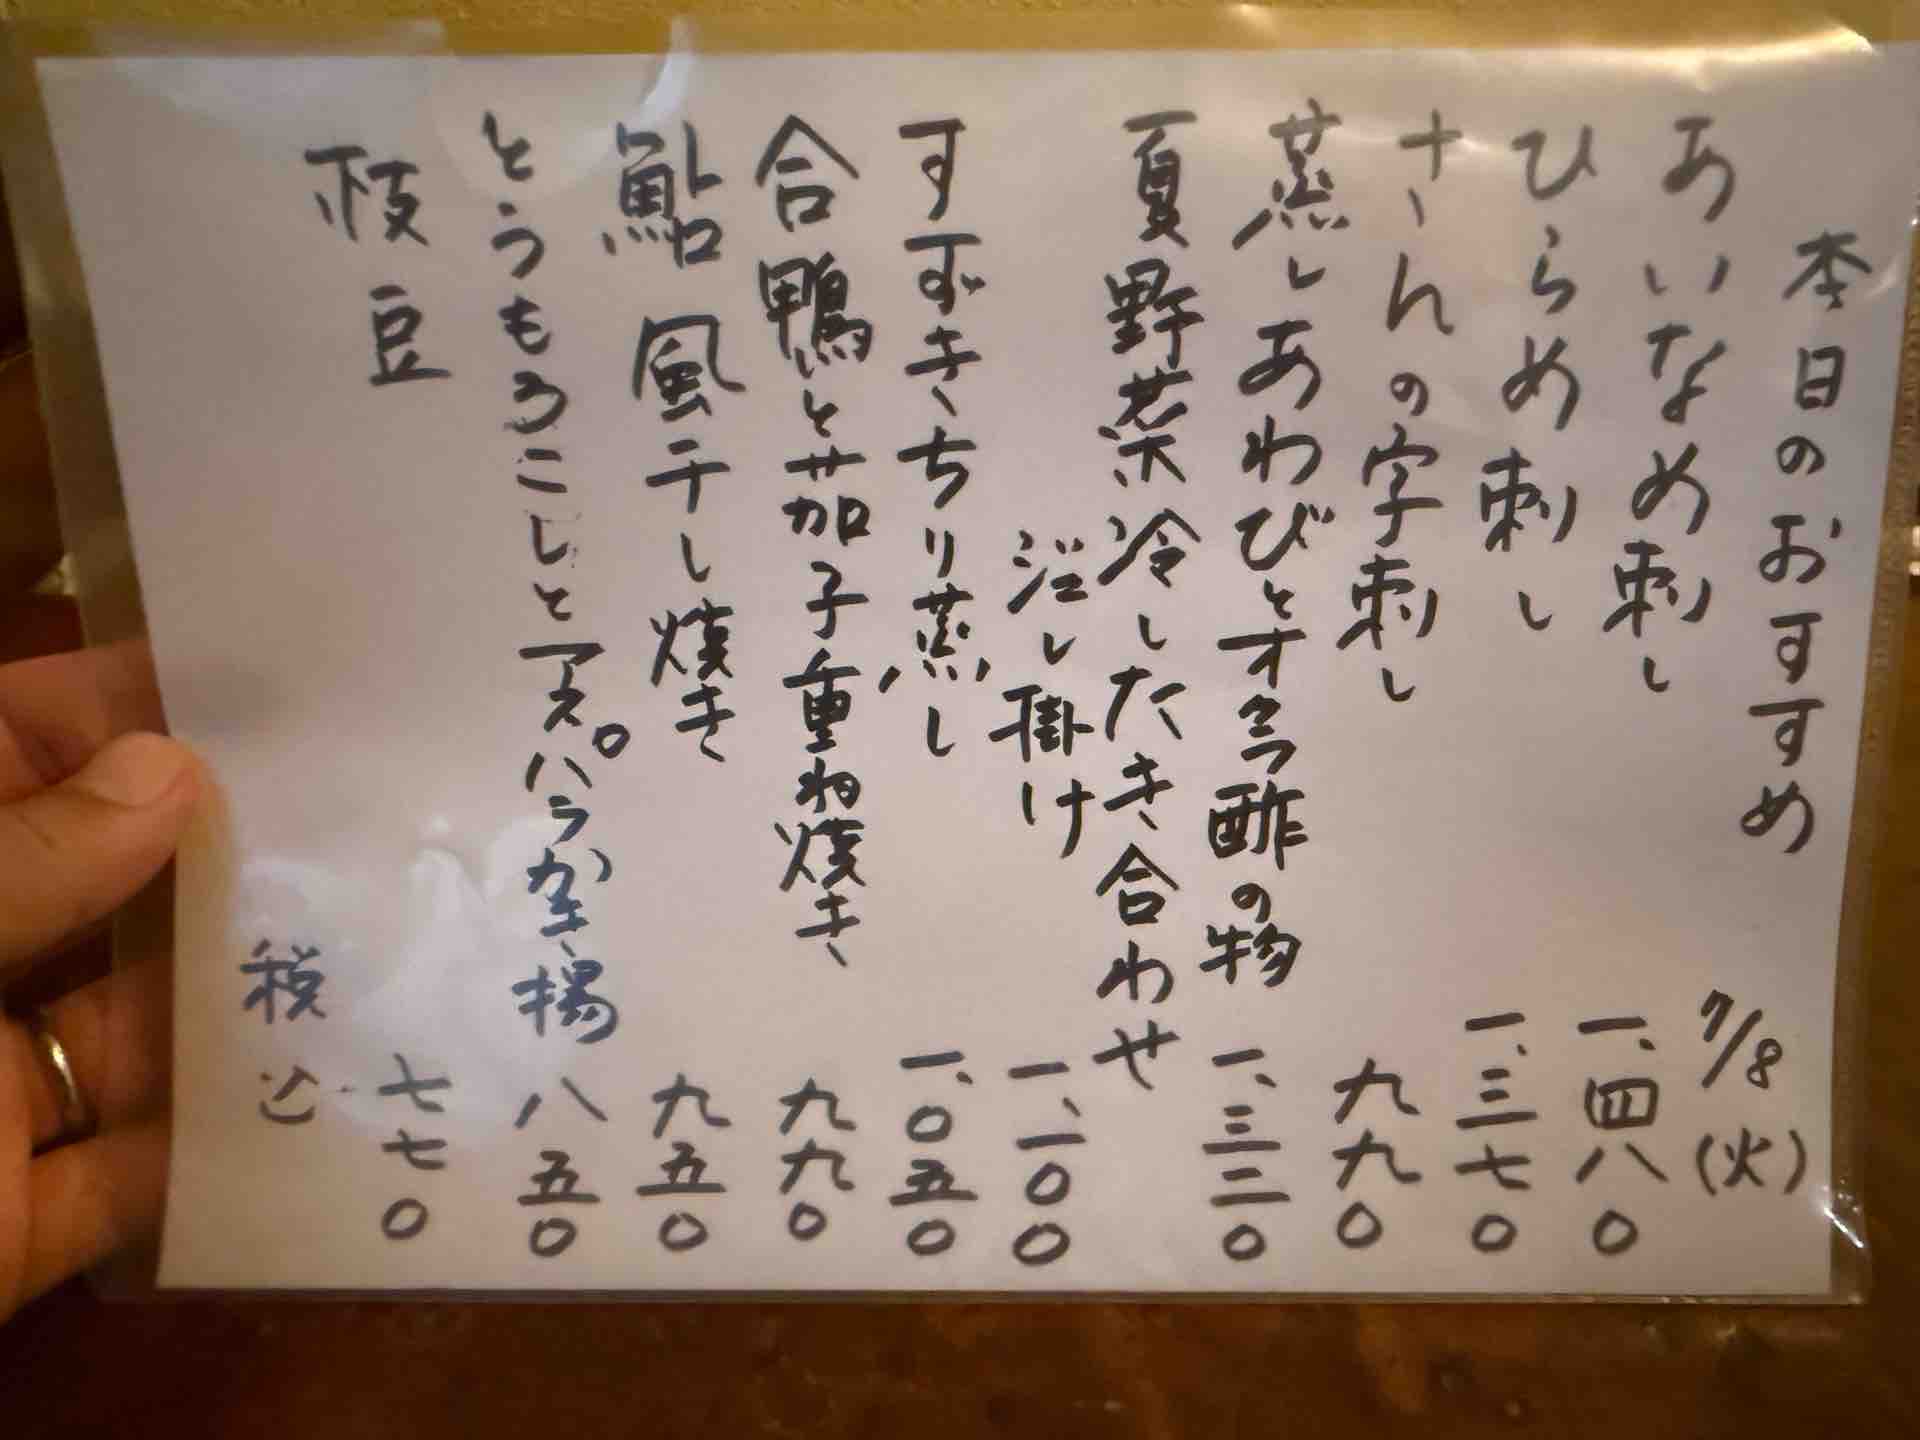 本日のおすすめ 7/8(火)
あいなめ刺し 一、四八〇
ひらめ刺し 一、三七〇
さんの字刺し 九九〇
蒸しあわびとオクラ酢の物 一、三二〇
夏野菜冷したき合わせ
し掛け 一、一〇〇
すずきちり蒸し 一、〇五〇
合鴨と茄子重ね焼き 九九〇
鮎風干し焼き 九五〇
とうもろこしとアスパラかき揚 八五〇
枝豆 七七〇
税込